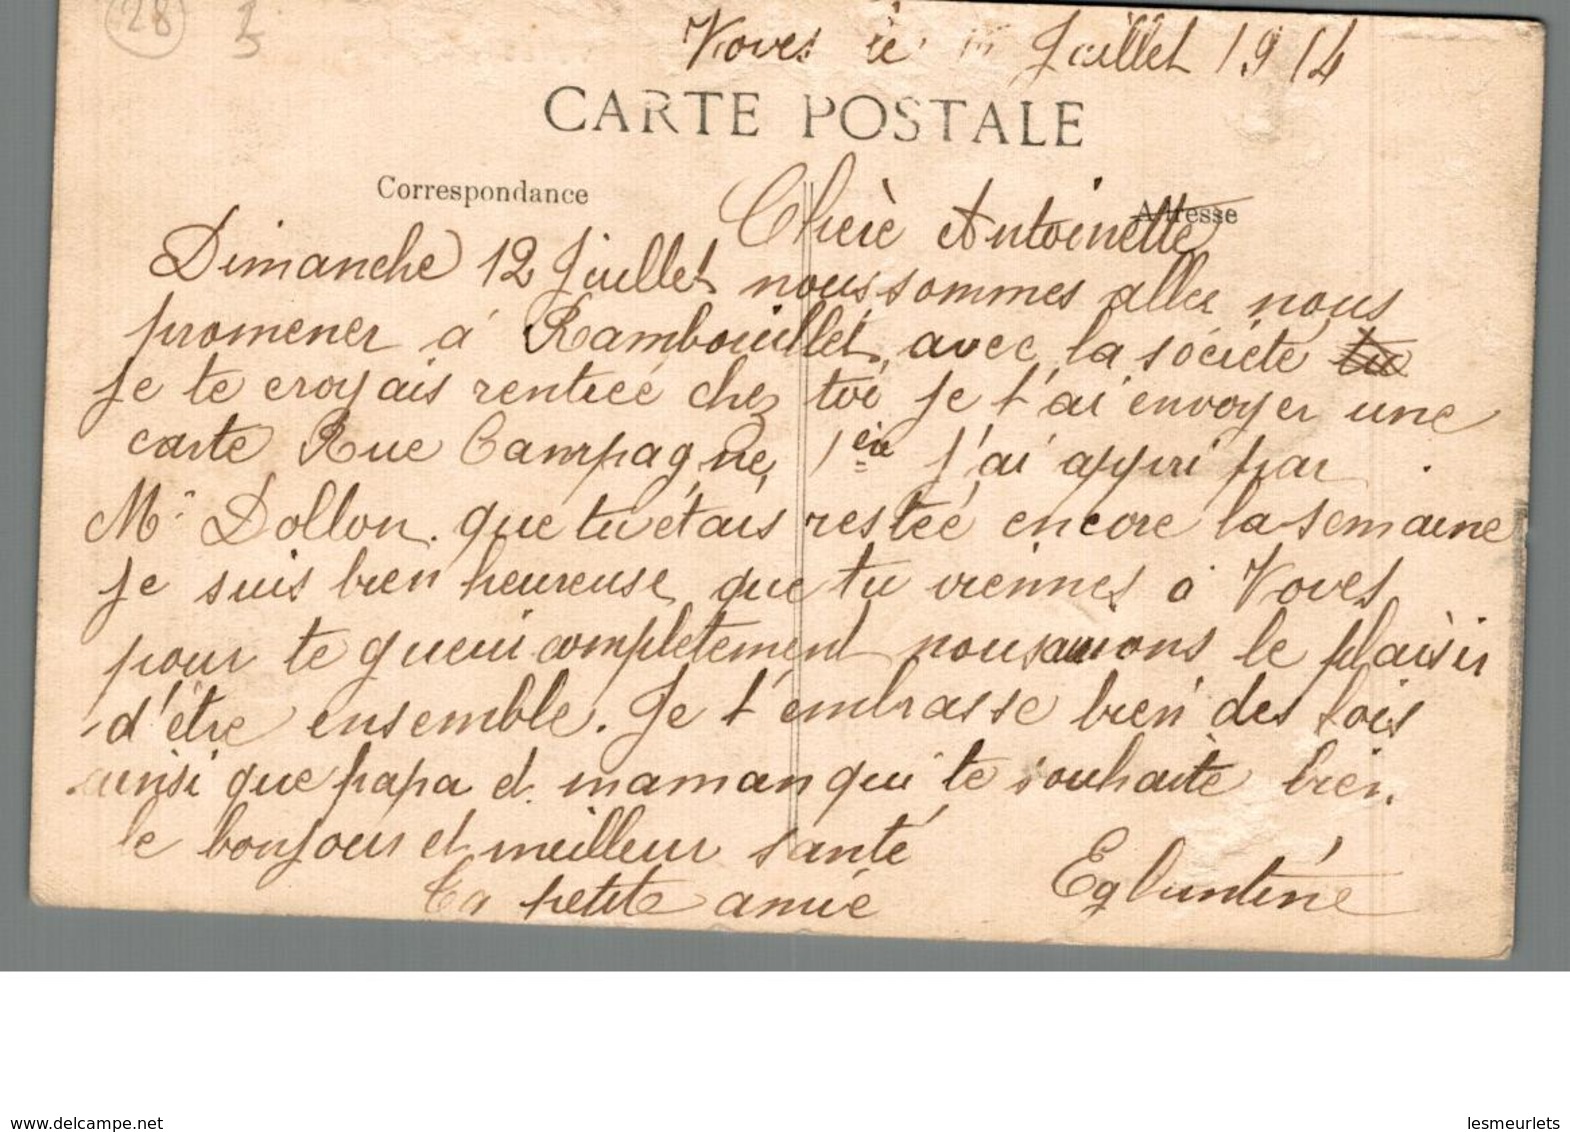 28
Voves le Juillet 1914
CARTE POSTALE
Correspondance
Adresse
Chère Antoinette
Dimanche 12 Juillet nous sommes aller nous
promener à Rambouillet, avec la société tu
Je te croyais rentreé chez toi Je t'ai envoyer une
carte Rue Campagne, 1ère J'ai appri par
Mr Dollon. que tu étais resteé encore la semaine
Je suis bien heureuse que tu viennes à Voves
pour te guerir completement nous aurions le plaisir
d'être ensemble. Je t'embrasse bien des fois
ainsi que papa et maman qui te souhaite bien
le bonjour et meilleur santé
Ta petite amie Eglantine
www.delcampe.net
lesmeurlets